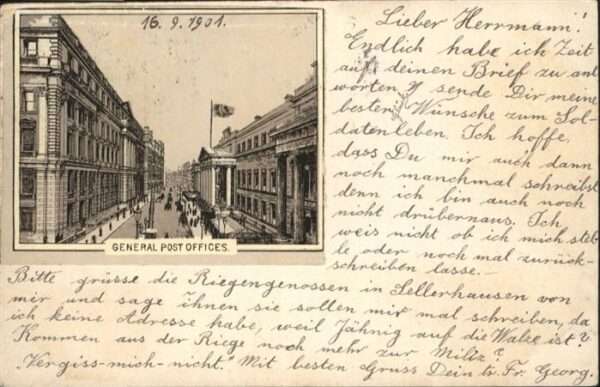 16.9.1901.
Lieber Herrmann!
Endlich habe ich Zeit
auf deinen Brief zu ant
worten & sende Dir meine
besten Wünsche zum Sol-
datenleben. Ich hoffe,
dass Du mir auch dann
noch manchmal schreibst
denn ich bin auch noch
nicht drübernaus. Ich
weis nicht ob ich mich stel-
le oder noch mal zurück-
schreiben lasse.-
GENERAL POST OFFICES.
Bitte grüsse die Riegengenossen in Sellerhausen von
mir und sage ihnen sie sollen mir mal schreiben, da
ich keine Adresse habe, weil Jähnig auf die Walze ist?
Kommen aus der Riege noch mehr zur Miliz?
"Vergiss-mich-nicht." Mit besten Gruss Dein tr. Fr. Georg.